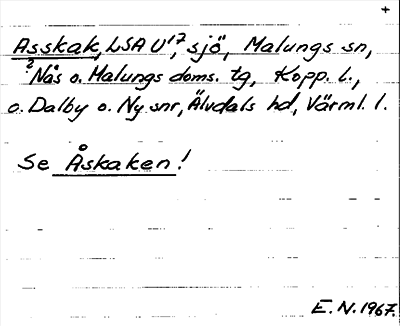 +
Asskak, LSA U¹⁷, sjö, Malungs sn,
²Nås o. Malungs doms. tg, Kopp. l.,
o. Dalby o. Ny snr, Älvdals hd, Värml. l.
Se Åskaken!
E. N. 1967.